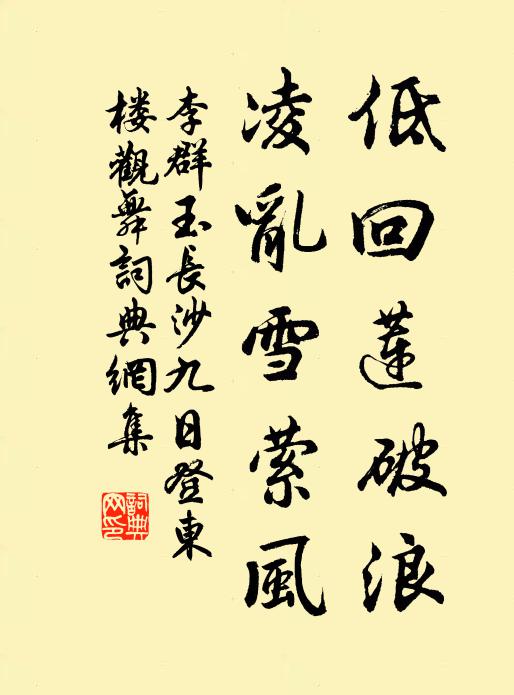 低回蓮破浪
凌亂雪萦風
李群玉長沙九日登東
楼觀舞詞典網集
詞典
网印